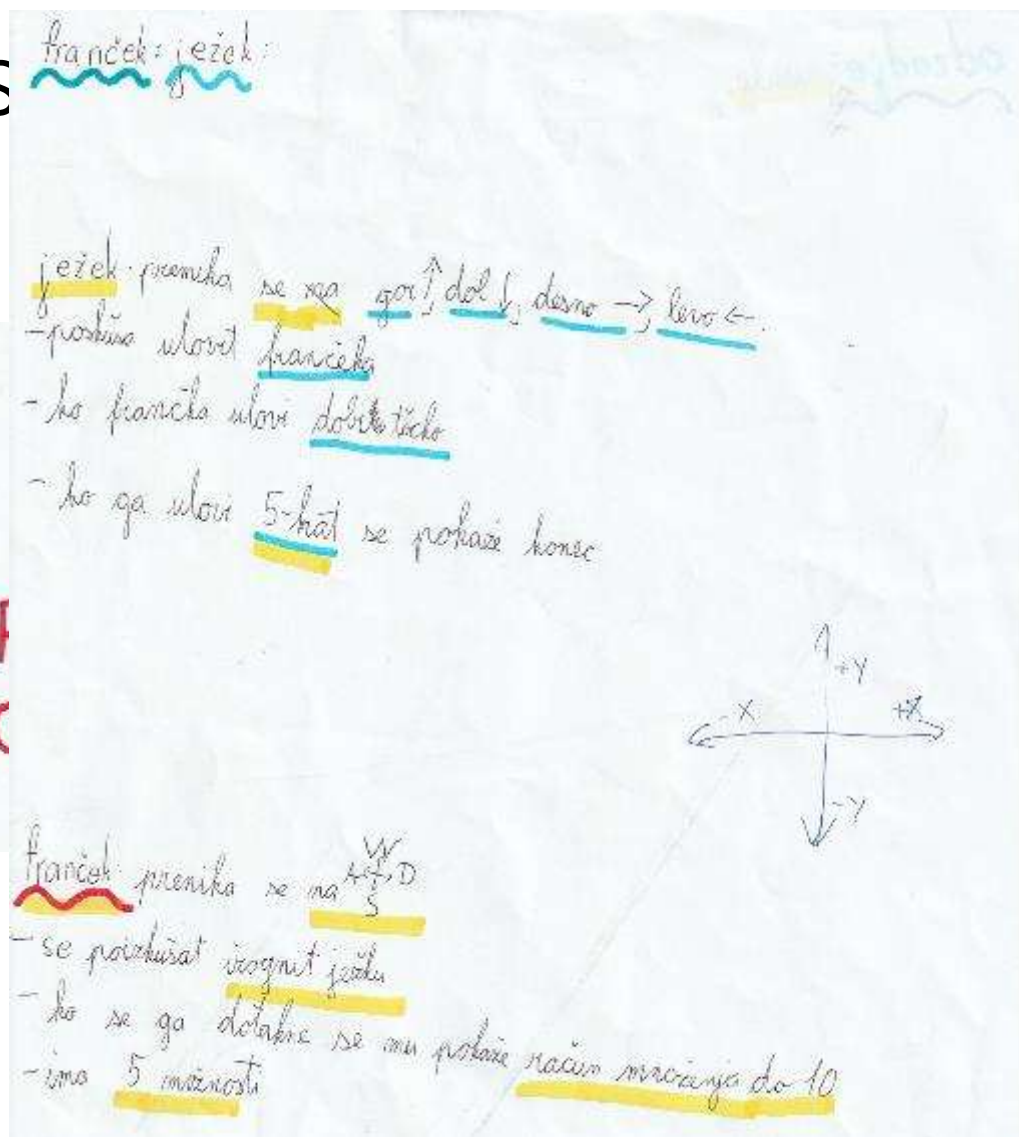 franček: ježek:
ježek premika se na gor ↑, dol ↓, desno →, levo ←.
- poskuša ulovit frančeka
- ko frančka ulovi dobi točko
- ko ga ulovi 5-kat se pokaže konec
+Y
-X +X
-Y
franček premika se na W A S D
- se poizkušat izognit ježku
- ko se ga dotakne se mu pokaže račun množenja do 10
- ima 5 možnosti